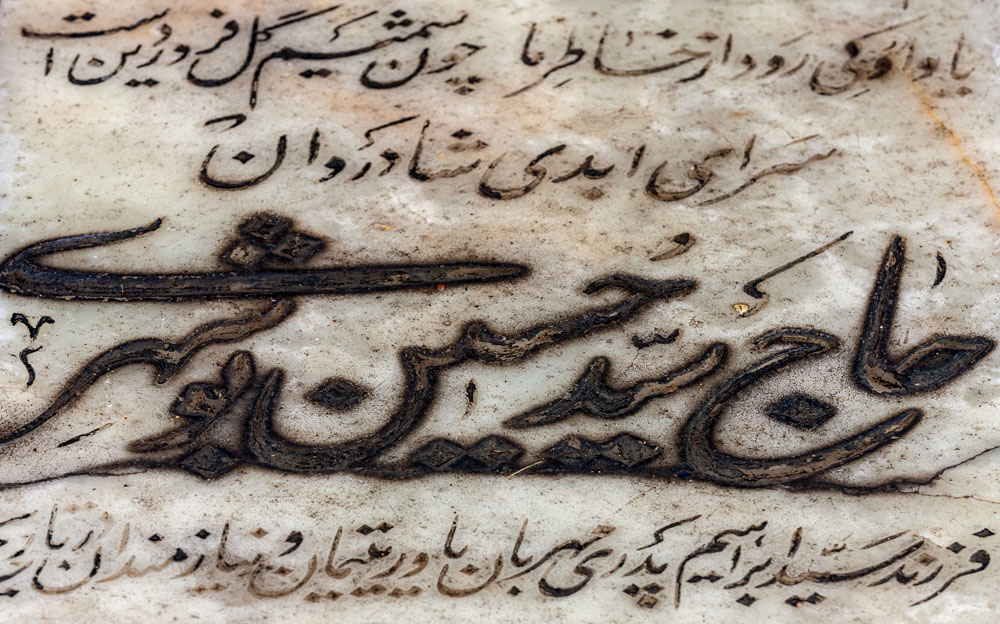 یاد او کی رود از خاطر ما چون شمیم گل فروردین است
سرای ابدی شادروان
حاج سید حسین بوشهری
فرزند سید ابراهیم پدری مهربان یاور یتیمان و نیازمندان